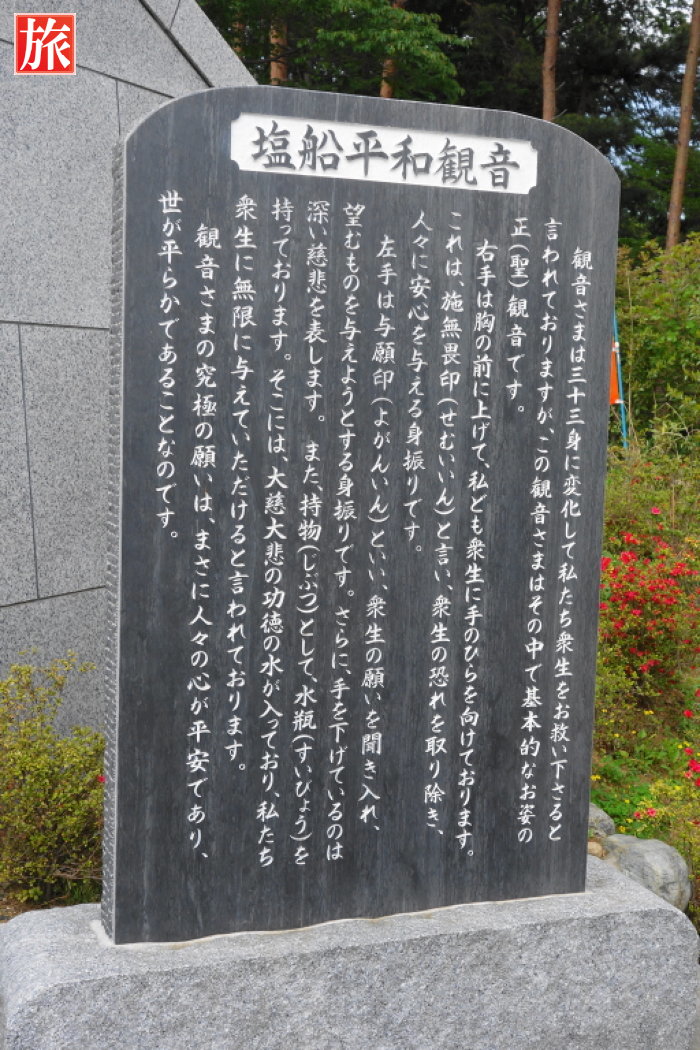 旅
塩船平和観音
観音さまは三十三身に変化して私たち衆生をお救い下さると
言われておりますが、この観音さまはその中で基本的なお姿の
正(聖)観音です。
右手は胸の前に上げて、私ども衆生に手のひらを向けております。
これは、施無畏印(せむいいん)と言い、衆生の恐れを取り除き、
人々に安心を与える身振りです。
左手は与願印(よがんいん)といい、衆生の願いを聞き入れ、
望むものを与えようとする身振りです。さらに、手を下げているのは
深い慈悲を表します。 また、持物(じぶつ)として、水瓶(すいびょう)を
持っております。そこには、大慈大悲の功徳の水が入っており、私たち
衆生に無限に与えていただけると言われております。
観音さまの究極の願いは、まさに人々の心が平安であり、
世が平らかであることなのです。